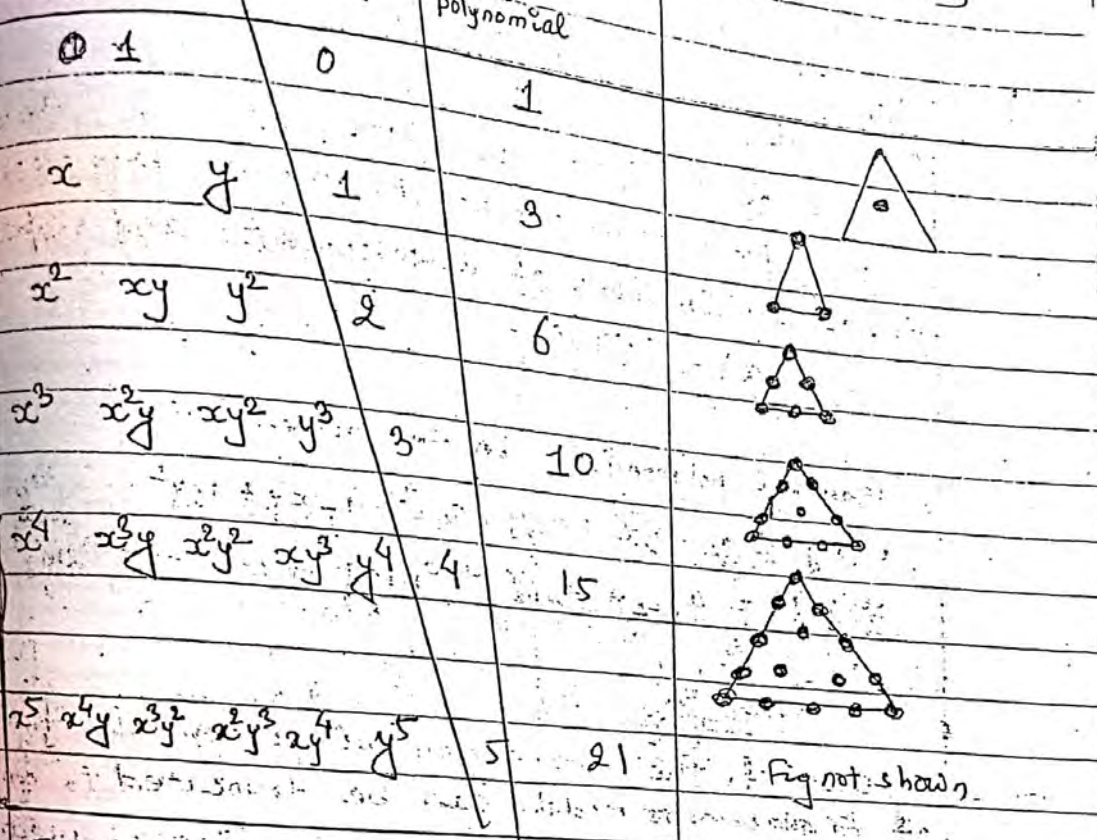 polynomial
1 0 1
x y 1 3
x² xy y² 2 6
x³ x²y xy² y³ 3 10
x⁴ x³y x²y² xy³ y⁴ 4 15
x⁵ x⁴y x³y² x²y³ xy⁴ y⁵ 5 21
Fig not shown